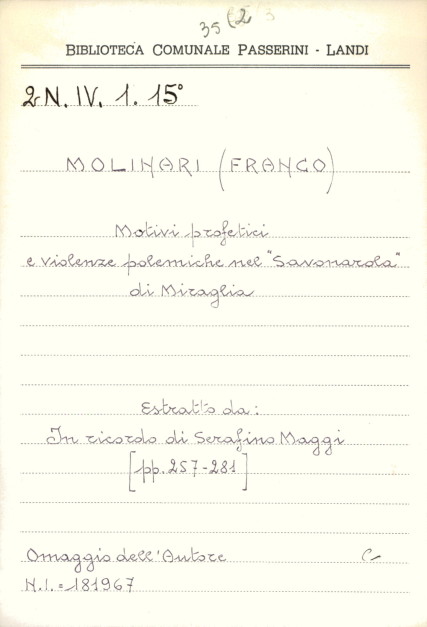 35 (2
BIBLIOTECA COMUNALE PASSERINI - LANDI
2 N. IV. 1. 15°
MOLINARI (FRANCO)
Motivi profetici
e violenze polemiche nel "Savonarola"
di Miraglia
Estratto da:
In ricordo di Serafino Maggi
[pp. 257-281]
Omaggio dell'Autore C
N.I. = 181967